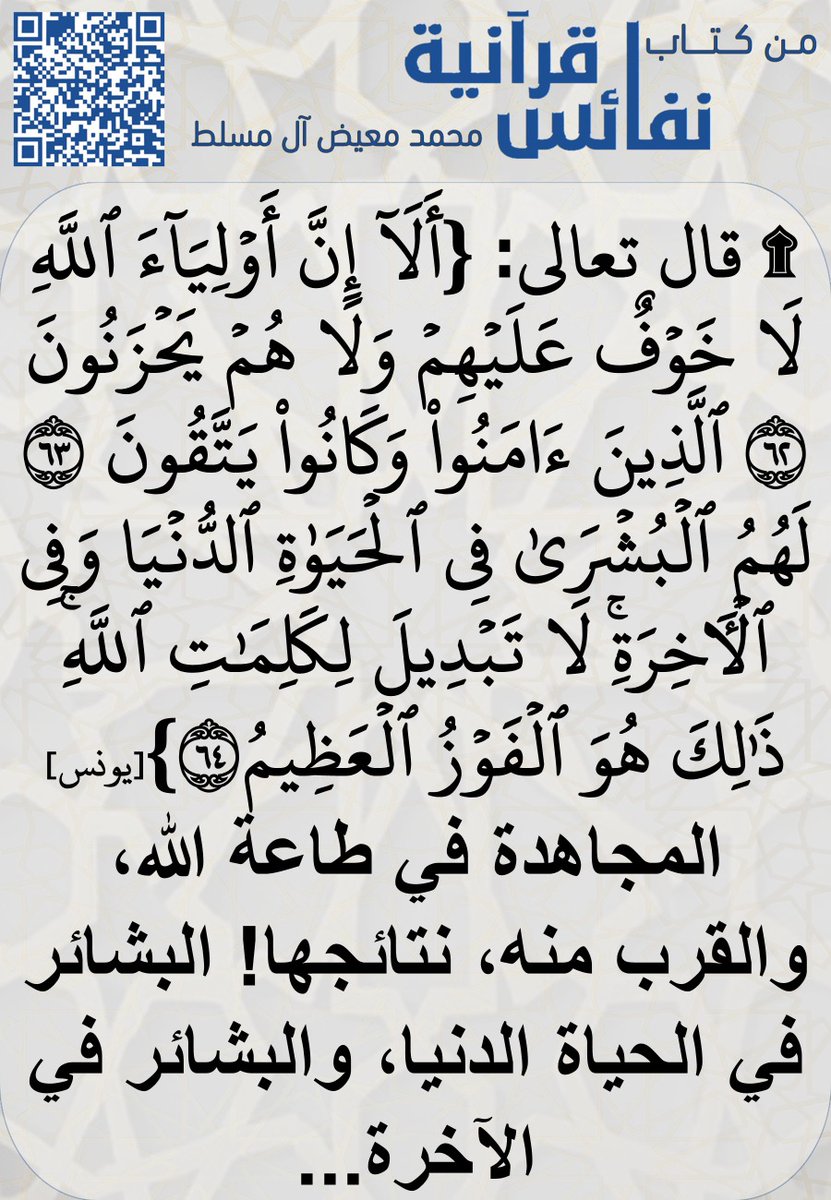 من كتاب
نفائس قرآنية
محمد معيض آل مسلط
۩ قال تعالى: {أَلَآ إِنَّ أَوۡلِيَآءَ ٱللَّهِ
لَا خَوۡفٌ عَلَيۡهِمۡ وَلَا هُمۡ يَحۡزَنُونَ
٦٢ ٱلَّذِينَ ءَامَنُواْ وَكَانُواْ يَتَّقُونَ ٦٣
لَهُمُ ٱلۡبُشۡرَىٰ فِي ٱلۡحَيَوٰةِ ٱلدُّنۡيَا وَفِي
ٱلۡأٓخِرَةِۚ لَا تَبۡدِيلَ لِكَلِمَٰتِ ٱللَّهِۚ
ذَٰلِكَ هُوَ ٱلۡفَوۡزُ ٱلۡعَظِيمُ ٦٤}[يونس]
المجاهدة في طاعة الله،
والقرب منه، نتائجها! البشائر
في الحياة الدنيا، والبشائر في
الآخرة...